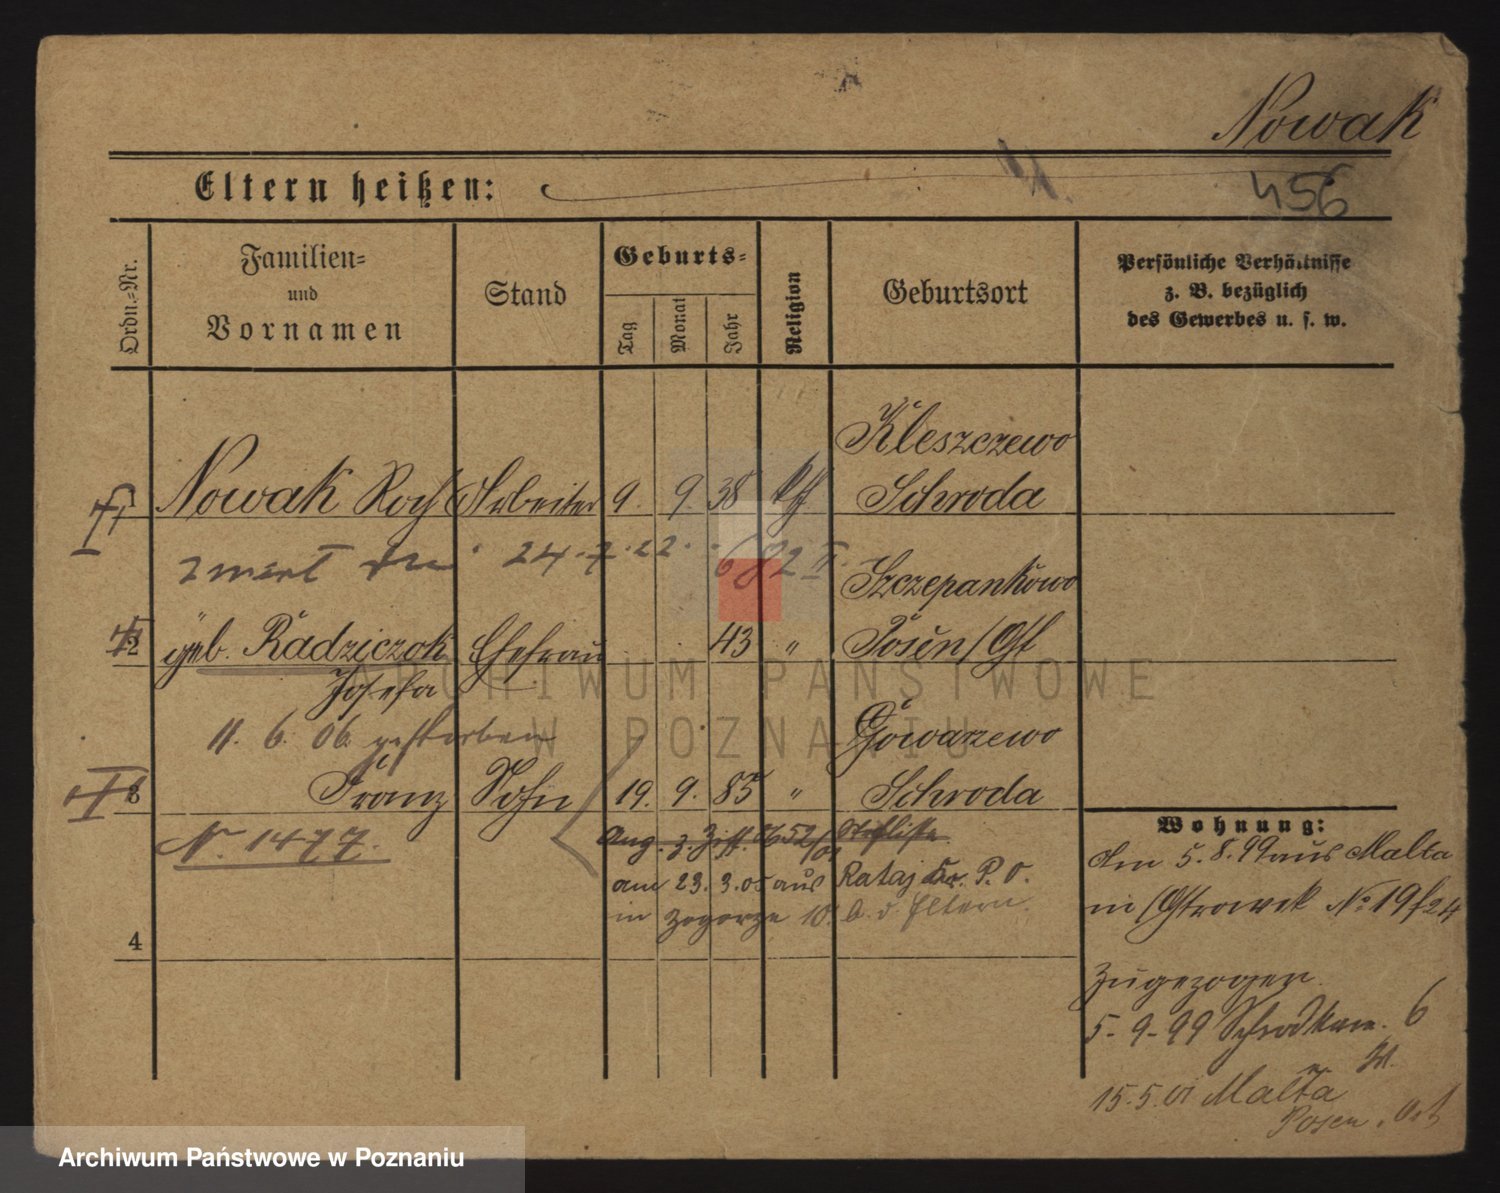 Nowak
456
Eltern heißen:
Ordn.-Nr.
Familien-
und
Vornamen
Stand
Geburts-
Tag
Monat
Jahr
Religion
Geburtsort
Persönliche Verhältnisse
z. B. bezüglich
des Gewerbes u. s. w.
Kleszczewo
1 Nowak Roch Arbeiter 9. 9. 38 kth Schroda
zmarł 24.7.22. 682 II.
Szczepankowo
2 geb. Radziczok Ehefrau 43 " Posen/Ost
Josefa
11. 6. 06. gestorben
Gowarzewo
3 Franz Sohn 19. 9. 85 " Schroda
Nr. 1477.
Ang. z. Ziff.
am 23. 3. 05 aus Rataj Kr. P. O.
in Zegorze 10. b. d. Eltern.
4
Wohnung:
Am 5.8.99 aus Malta
in Ostrowek No 19 f24
Zugezogen
5-9-99 6
15.5.01 Malta
Posen. Ost
ARCHIWUM PAŃSTWOWE
W POZNANIU
Archiwum Państwowe w Poznaniu